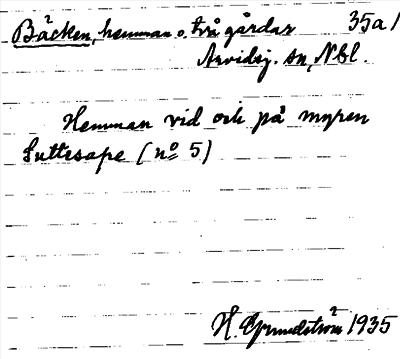 Bäcken, hemman o. två gårdar 35a1
Arvidsj. sn, Nbl.
Hemman vid och på myren
Suttesape (no 5)
H. Grundström 1935